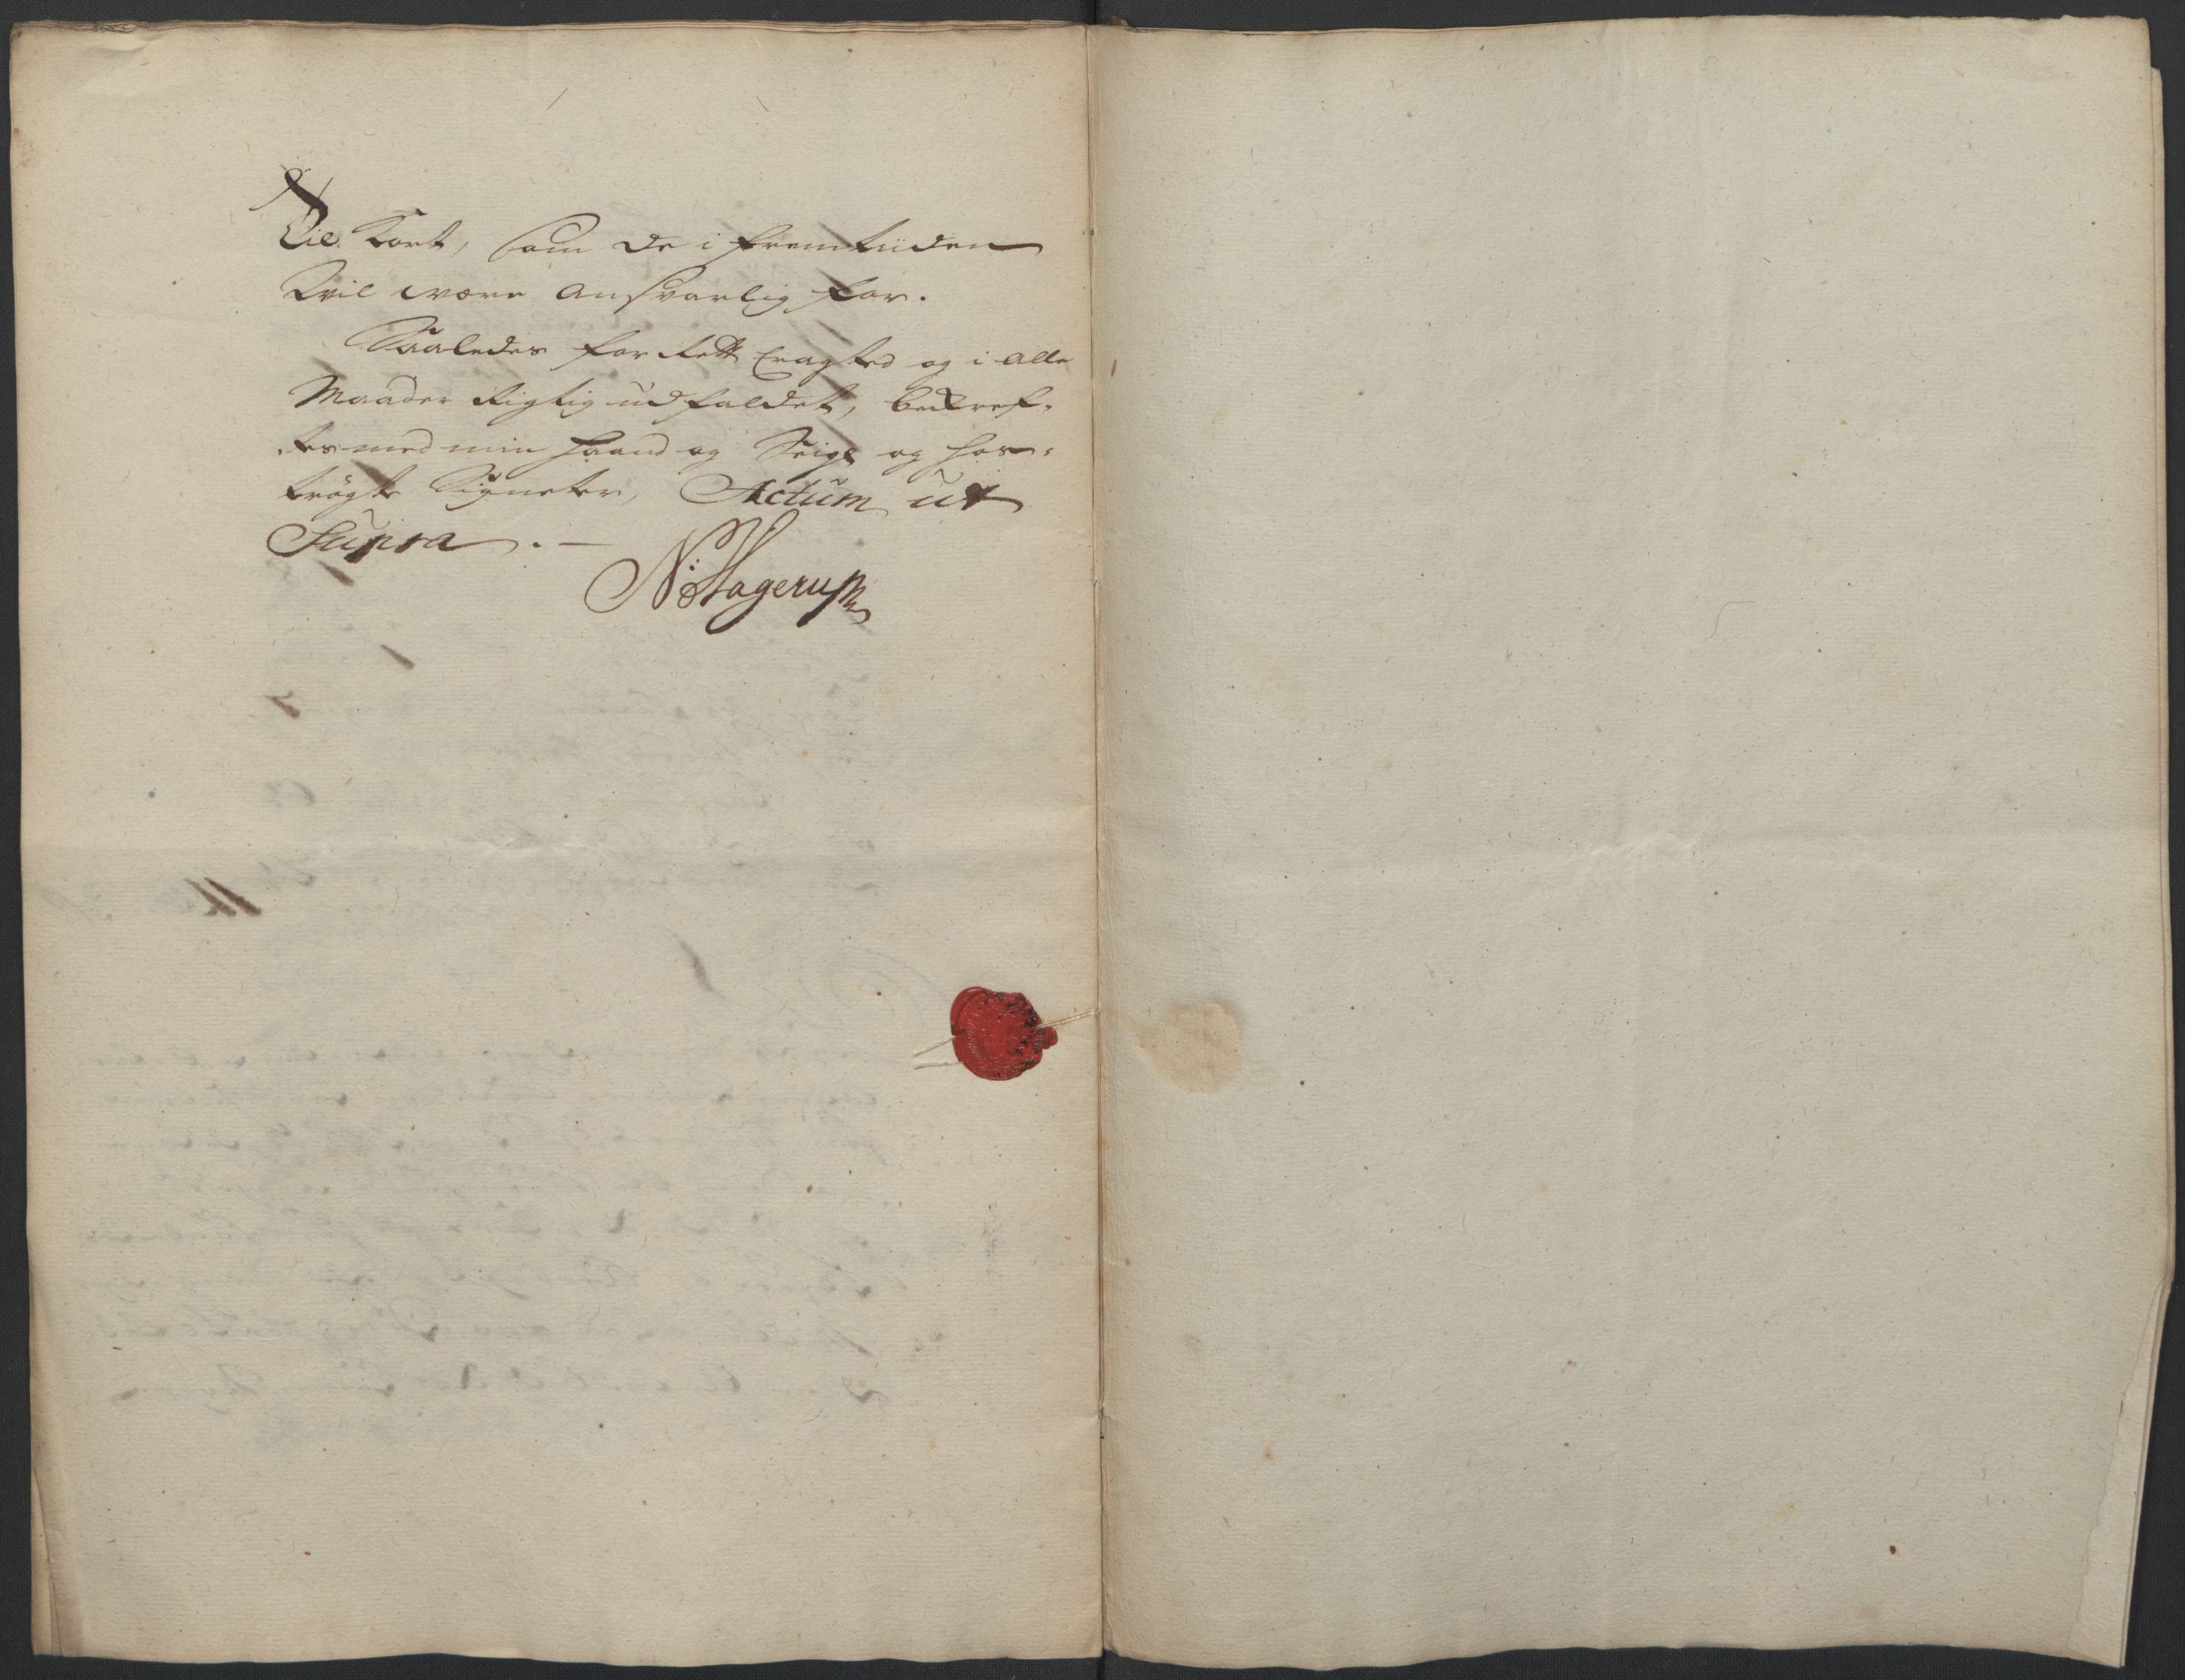 Til Kort, som de i fremtiiden
Vil være Ansvarlig for.
Saaledes for Rett Eragted og i alle
Maader Rigtig udfaldet, bekref-
tes med min Haand og Seigl og hos-
trögte Signeter, Actum ut
Supra. —
N: Hagerup